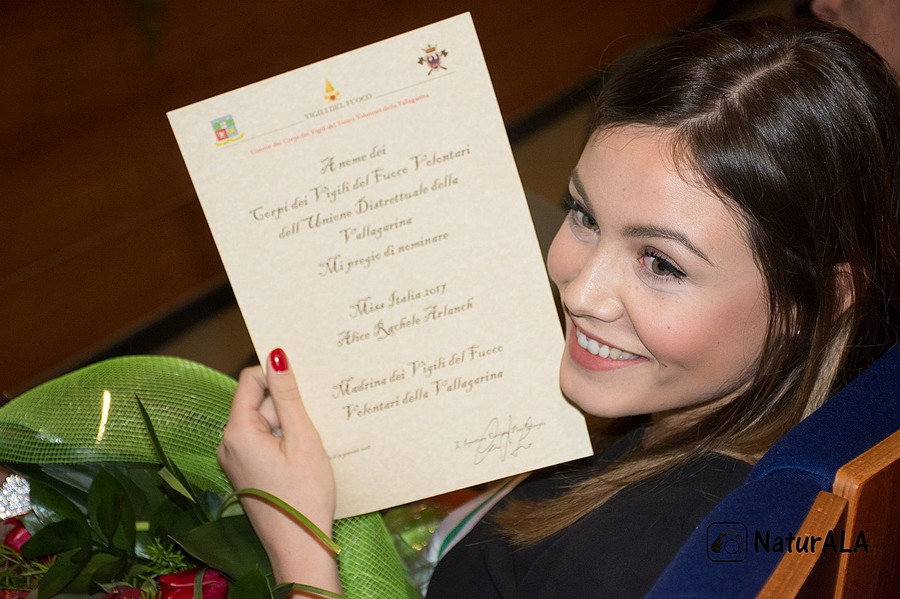 VIGILI DEL FUOCO
Unione dei Corpi dei Vigili del Fuoco Volontari della Vallagarina
A nome dei
Corpi dei Vigili del Fuoco Volontari
dell'Unione Distrettuale della
Vallagarina
Mi pregio di nominare
Miss Italia 2017
Alice Rachele Arlanch
Madrina dei Vigili del Fuoco
Volontari della Vallagarina
NaturALA